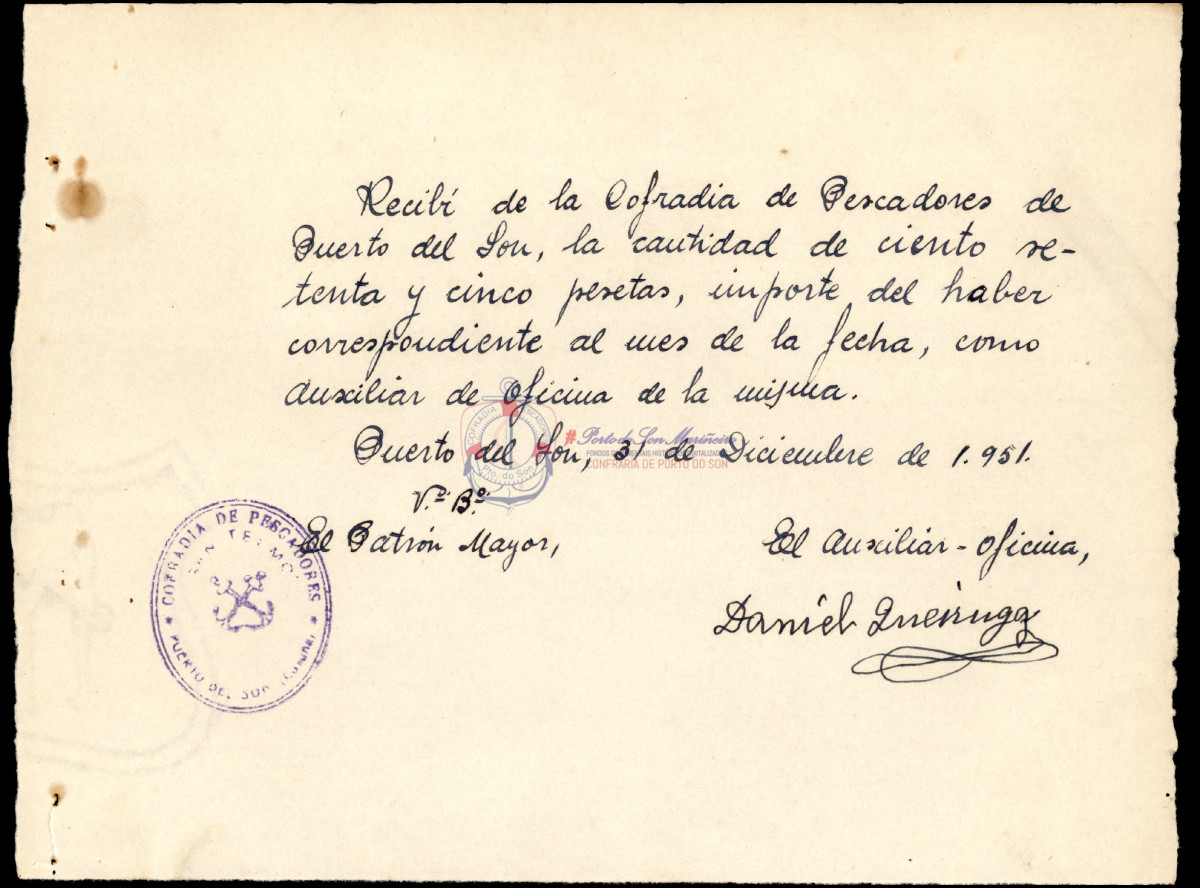 Recibí de la Cofradia de Pescadores de
Puerto del Son, la cantidad de ciento se-
tenta y cinco pesetas, importe del haber
correspondiente al mes de la fecha, como
Auxiliar de Oficina de la misma.
Puerto del Son, 31 de Diciembre de 1.951.
V.º B.º
El Patrón Mayor,
El Auxiliar-Oficina,
Daniel Queiruga
COFRADIA DE PESCADORES
SAN TELMO
PUERTO DEL SON (CORUÑA)
COFRADIA PESCADORES
Pto. do Son
#Porto do Son Mariñeiro
FONDOS DOCUMENTAIS HISTÓRICOS DIGITALIZADOS
CONFRARIA DE PORTO DO SON